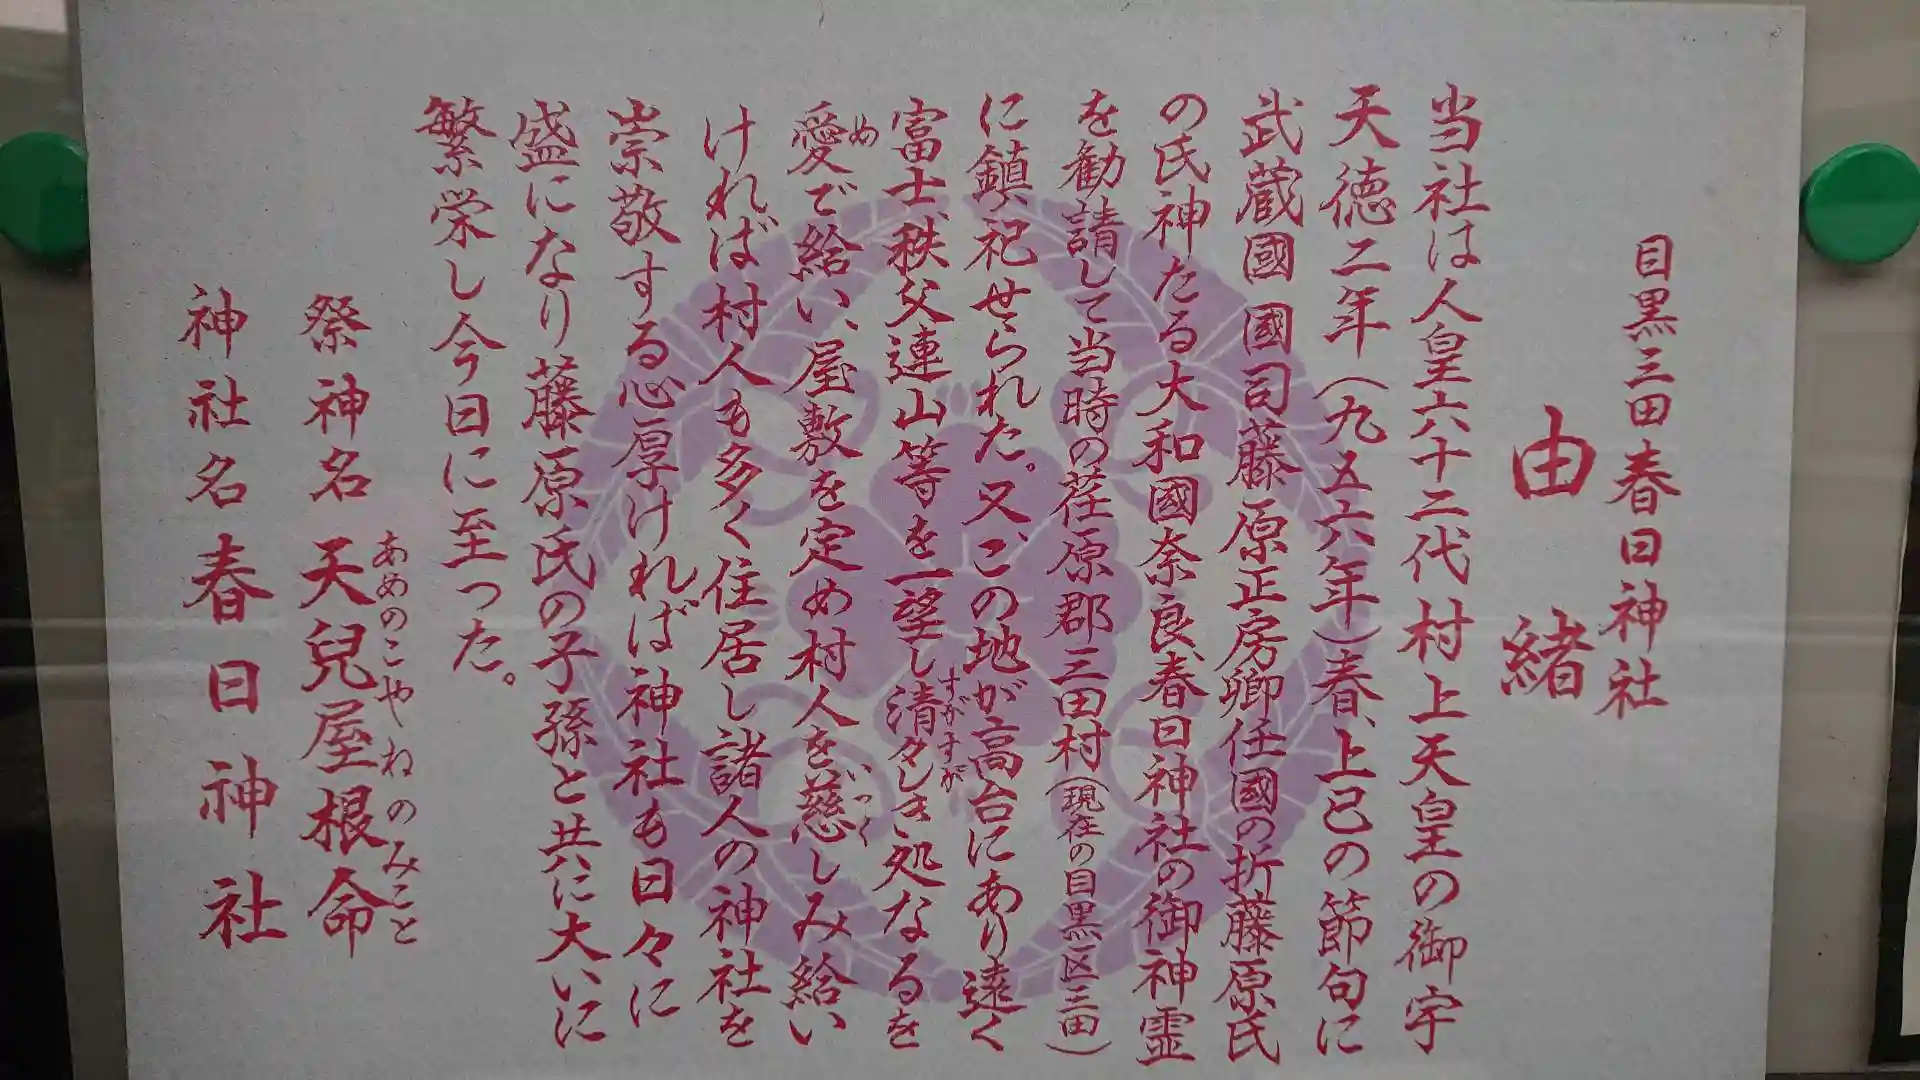 目黒三田春日神社
由緒
当社は人皇六十二代村上天皇の御宇
天徳二年(九五六年)春、上巳の節句に
武蔵國國司藤原正房卿任國の折藤原氏
の氏神たる大和國奈良春日神社の御神霊
を勧請して当時の荏原郡三田村(現在の目黒区三田)
に鎮祀せられた。又、この地が高台にあり遠く
富士、秩父連山等を一望し清々しき処なるを
すがすが
愛で給い、屋敷を定め村人を慈しみ給い
め
いつく
ければ村人も多く住居し諸人の神社を
崇敬する心厚ければ神社も日々に
盛になり藤原氏の子孫と共に大いに
繁栄し今日に至った。
祭神名 天兒屋根命
あめのこやねのみこと
神社名 春日神社